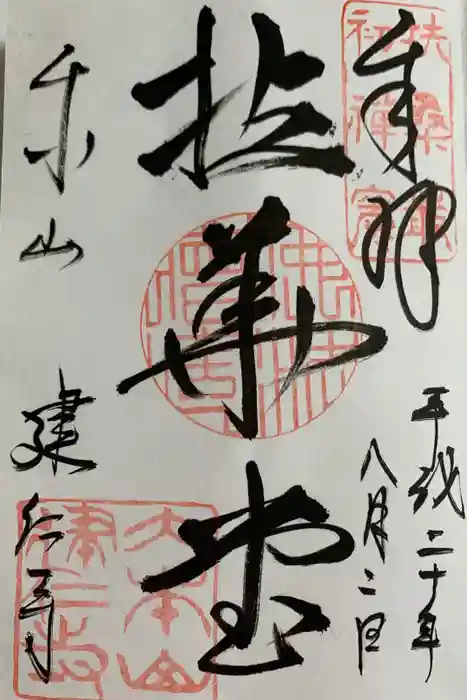 奉拝
平成二十年
八月二日
拈華堂
東山
建仁寺
扶桑最初禅窟
大本山建仁寺